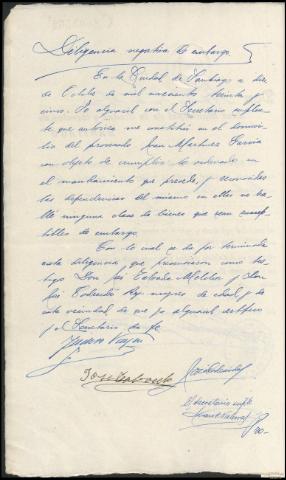 Diligencia negativa de embargo
En la Ciudad de Santiago a diez
de Octubre de mil novecientos treinta y
cinco. Yo alguacil con el Secretario suplen-
te que autoriza me constituí en el domici-
lio del procesado Juan Martinez Garcia
con objeto de cumplir lo ordenado en
el mandamiento que precede, y reconocidas
las dependencias del mismo en ellas no ha-
llé ninguna clase de bienes que sean suscep-
tibles de embargo.
Con lo cual se da por terminada
esta diligencia que presenciaron como tes-
tigos Don José Taboada y Don
José Rey mayores de edad y de
esta vecindad de que yo alguacil certifico
yo Secretario doy fe
José Taboada
El Secretario suplte